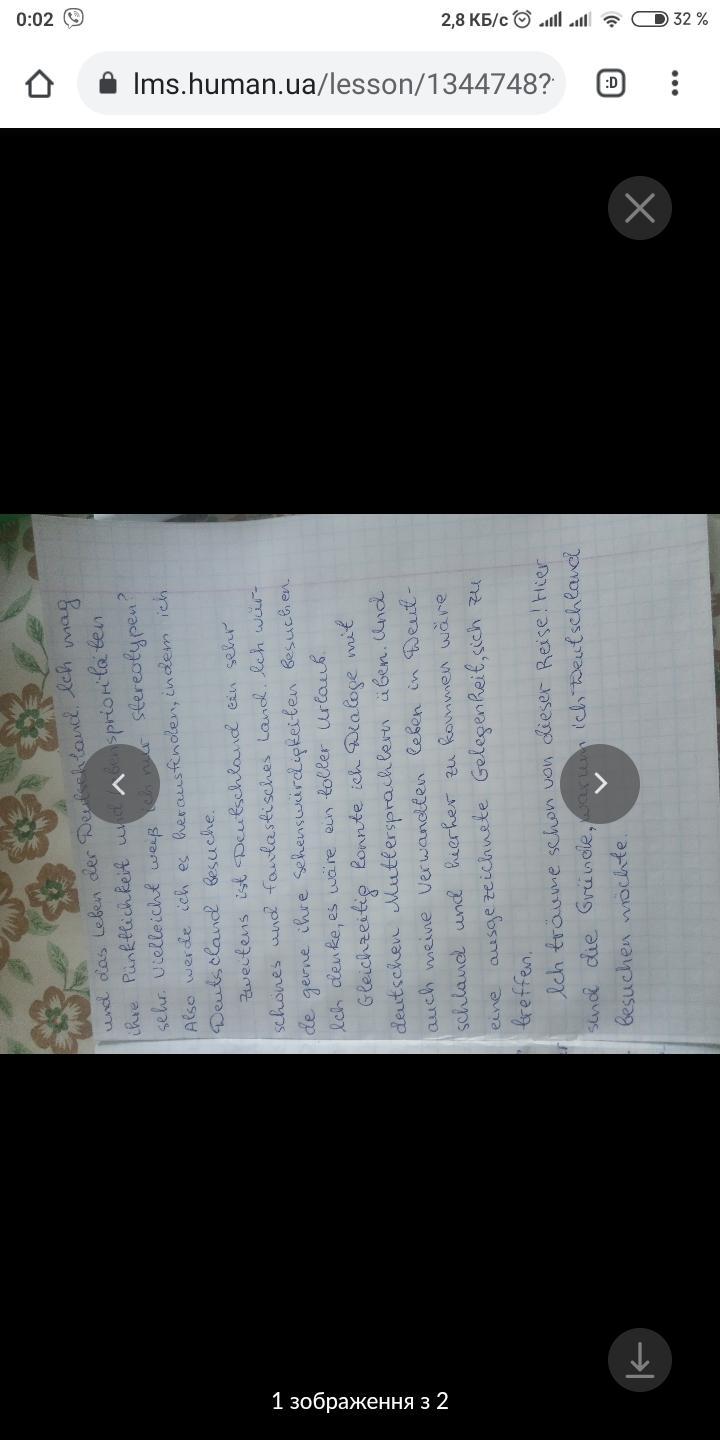 0:02
2,8 КБ/с
32 %
lms.human.ua/lesson/1344748?
:D
und das Leben der Deutschland. Ich mag
ihre Pünktlichkeit und prioritäten
sehr. Vielleicht weiß ich nur stereotypen?
Also werde ich es herausfinden, indem ich
Deutscland besuche.
Zweitens ist Deutschland ein sehr
schönes und fantastisches Land. Ich wür-
de gerne ihre Sehenswürdigkeiten besuchen.
Ich denke, es wäre ein toller Urlaub.
Gleichzeitig konnte ich Dialoge mit
deutschen Muttersprachlern üben. Und
auch meine Verwandten leben in Deut-
schland und hierher zu kommen wäre
eine ausgezeichnete Gelegenheit, sich zu
treffen.
Ich träume schon von dieser Reise! Hier
sind die Gründe, warum ich Deutschland
besuchen möchte.
1 зображення з 2